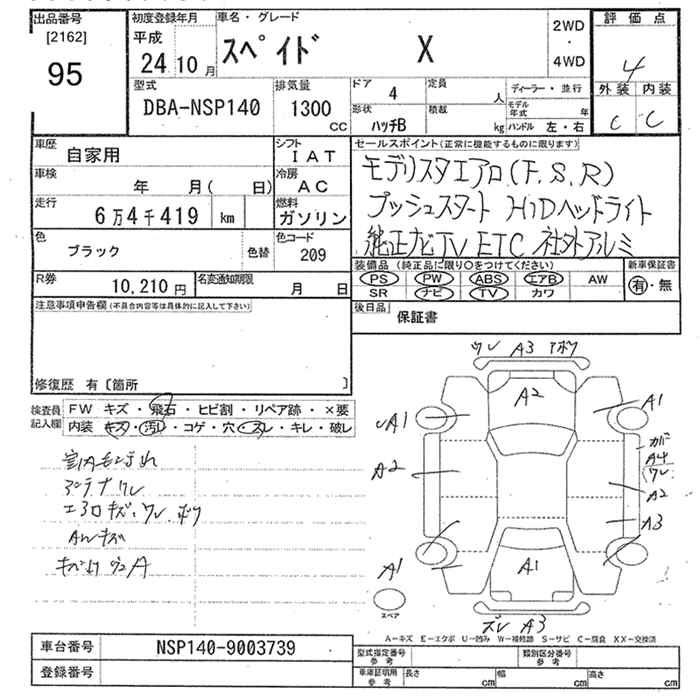 出品番号
[2162]
95
初度登録年月
平成
24年10月
車名・グレード
スペイド X
2WD
・
4WD
評価点
4
外装 内装
C C
型式
DBA-NSP140
排気量
1300
CC
ドア
4
定員
人
形状
ハッチB
積載
kg
ディーラー・並行
モデル年式 年
ハンドル 左・右
車歴
自家用
シフト
IAT
車検
年 月( 日)
冷房
AC
走行
6万4千419 km
燃料
ガソリン
色
ブラック
色替
色コード
209
R券
10,210円
名変通知期限
月 日
セールスポイント(正常に機能するものに限ります)
モデリスタエアロ(F.S.R)
プッシュスタート HIDヘッドライト
純正ナビTV ETC 社外アルミ
装備品(純正品に限り○をつけてください)
PS PW ABS エアB AW
SR ナビ TV カワ
新車保証書
有・無
後日品
保証書
注意事項申告欄(不具合内容等は具体的に記入して下さい)
修復歴 有〔箇所 〕
検査員記入欄
FW キズ・飛石・ヒビ割・リペア跡・×要
内装 キズ・汚レ・コゲ・穴・スレ・キレ・破レ
アンテナワレ
エアロキズ・ワレ
AWキズ
ワレ A3
A2
A1
A1
A2
A4
ワレ
A2
A3
A1
A1
ズレ A3
スペア
A-キズ E-エクボ U-凹み W-補修跡 S-サビ C-腐食 XX-交換済
車台番号
NSP140-9003739
登録番号
型式指定番号
参考
類別区分番号
参考
車庫証明用
参考
長さ cm
幅 cm
高さ cm